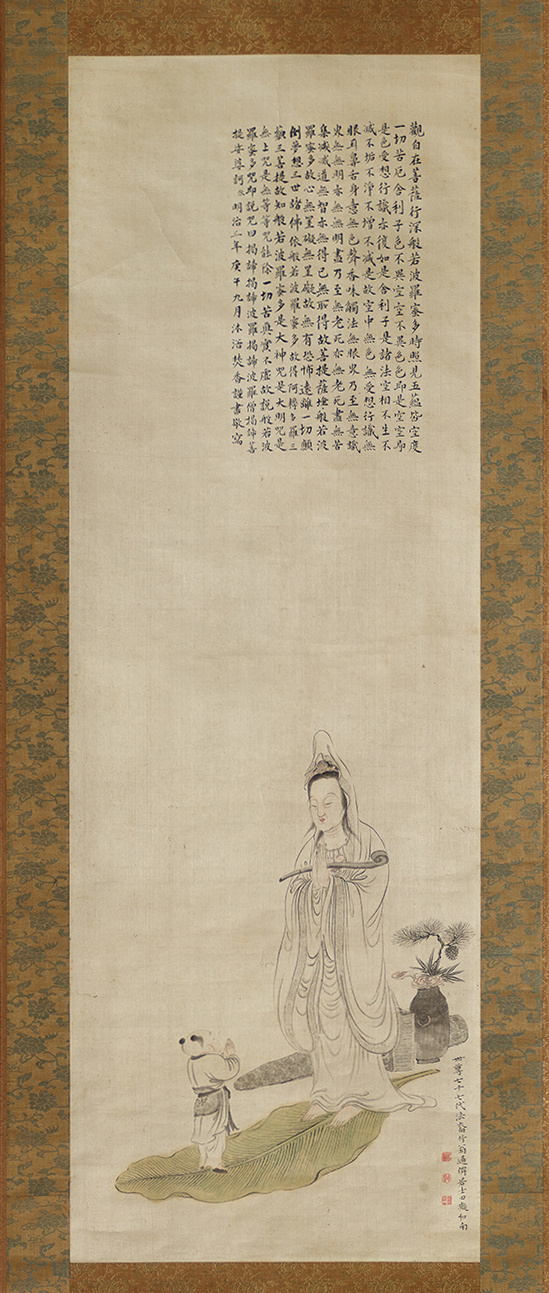 觀自在菩薩行深般若波羅蜜多時照見五蘊皆空度
一切苦厄舍利子色不異空空不異色色即是空空即
是色受想行識亦復如是舍利子是諸法空相不生不
滅不垢不淨不增不減是故空中無色無受想行識無
眼耳鼻舌身意無色聲香味觸法無眼界乃至無意識
界無無明亦無無明盡乃至無老死亦無老死盡無苦
集滅道無智亦無得已無所得故菩提薩埵般若波
羅蜜多故心無罣礙無罣礙故無有恐怖遠離一切顛
倒夢想三世諸佛依般若波羅蜜多故得阿耨多羅三
藐三菩提故知般若波羅蜜多是大神咒是大明咒是
無上咒是無等等咒能除一切苦真實不虛故說般若波
羅蜜多咒即說咒曰揭諦揭諦波羅揭諦波羅僧揭諦菩
提 訶 明治三年庚午九月沐浴焚香謹書敬寫
世尊七十七代法裔竹翁道 居士 和南